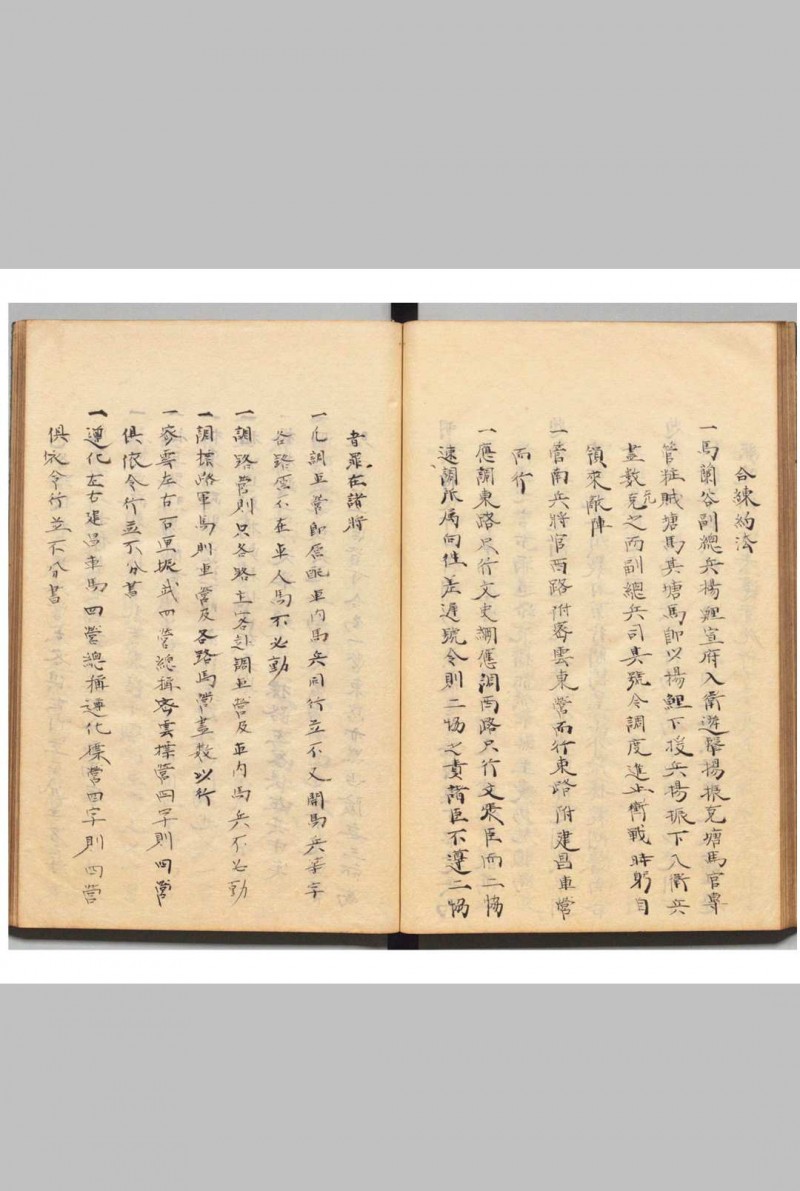 合練約法
一馬蘭谷副總兵楊鯉宣府入衛遊擊楊振充塘馬官專
管粧賊塘馬其塘馬即以楊鯉下援兵楊振下入衛兵
盡數充之而副總兵司其號令調度進止衝戰時躬自
領來敵陣
一管南兵將官西路附密雲東營而行東路附建昌車營
而行
一應調東路只行文史調應調西路只行文張臣而二協
速調所屬向往差遲號令則二協之責諸臣不遵二協
者罪在諸將
一凡調車營即原配車內馬兵同行並不又開馬兵等字
各路雖不在車人馬不必動
一調路營則只各路主客赴調車營及車內馬兵不必動
一調標路軍馬則車營及各路馬營盡數以行
一密雲左右石匣振武四營總稱密雲標營四字則四營
俱依令行並不分書
一遵化左右建昌車馬四營總稱遵化標營四字則四營
俱依令行並不分書